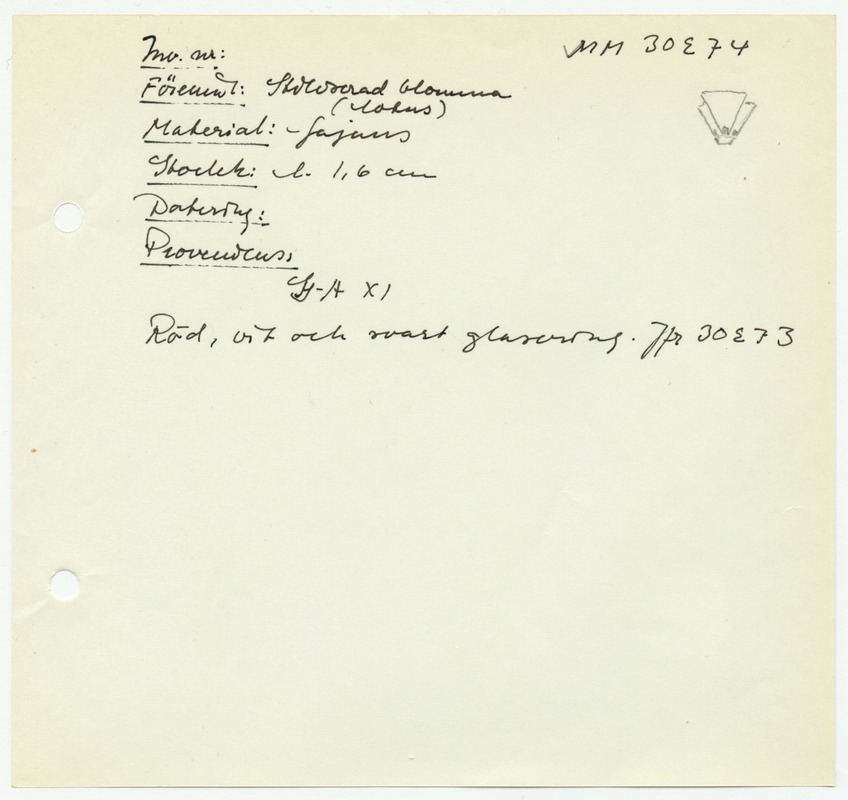 Inv. nr: MM 30874
Föremål: Stiliserad blomma
(lotus)
Material: Fajans
Storlek: l. 1,6 cm
Datering:
Proveniens:
XI
Röd, vit och svart glasering. Jfr 30873